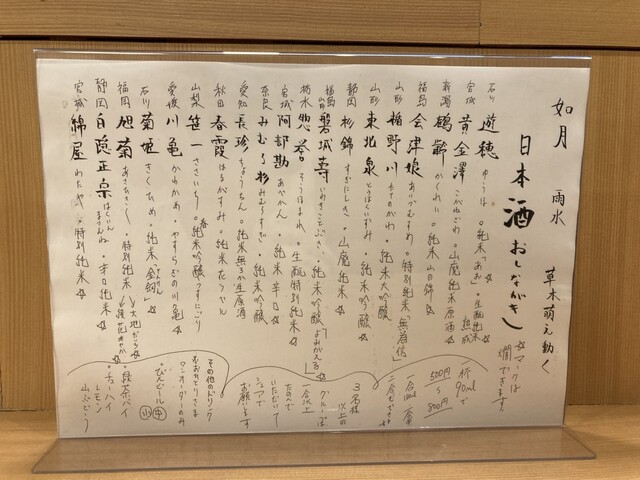 如月 雨水 草木萌え動く
日本酒おしながき
☆マークは
燗できます。
石川 遊穂 ゆうほ
宮城 黄金澤 こがねざわ・山廃純米原酒
新潟 鶴齢 かくれい・純米 山田錦 ☆
福島 会津娘 あいづむすめ・特別純米
山形 楯野川 たてのかわ・純米大吟醸
山形 東北泉 とうほくいずみ・純米吟醸 ☆
静岡 杉錦 すぎにしき・山廃純米 ☆
福島 磐城壽 いわきことぶき・純米吟醸
栃木 惣誉 そうほまれ・生酛特別純米 ☆
宮城 阿部勘 あべかん・純米辛口 ☆
奈良 みむろ杉 みむろすぎ・純米吟醸
愛知 長珍 ちょうちん・純米無ろ過生原酒
秋田 春霞 はるかすみ・純米 花ラベル
山梨 笹一 ささいち・純米吟醸うすにごり
愛媛 川亀 かわかめ・やすらぎの川亀 ☆
石川 菊姫 きくひめ・純米 金劔 ☆
福岡 旭菊 あさひきく・特別純米
静岡 白隠正宗 はくいんまさむね・辛口純米 ☆
宮城 綿屋 わたや・特別純米 ☆
一杯
90mlで
500円
〜
800円
3名様
以上の
グループは
一合以上
たのんで
いただいて
シェアで
お願いします
その他のドリンク
ワンオーダーのみ
・びんビール 小 中
・緑茶ハイ
・チューハイ
レモン
山ぶどう